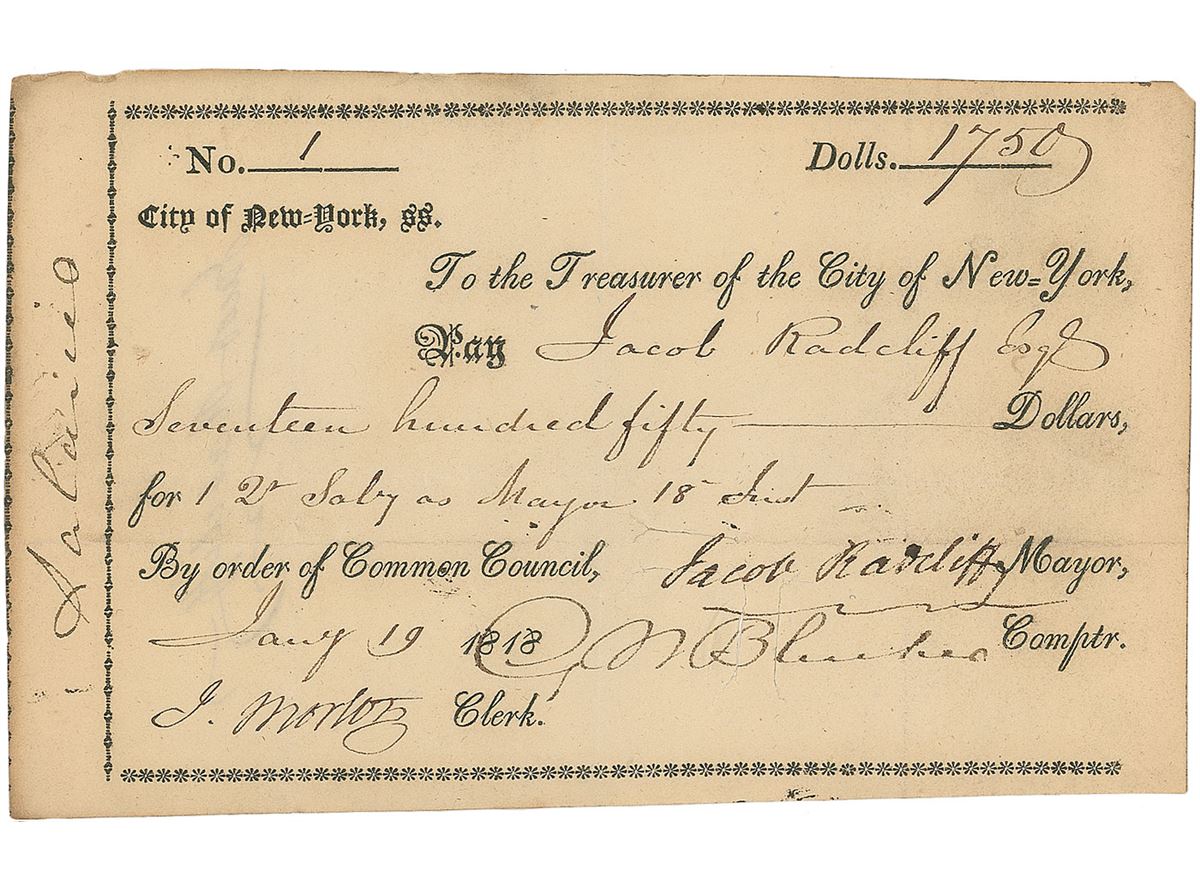 No. 1 Dolls. 1750
City of New=York, ss.
To the Treasurer of the City of New=York,
Pay Jacob Radcliff Esqr
Seventeen hundred fifty Dollars,
for 1 Qr Salry as Mayor 18 Inst
By order of Common Council, Jacob Radcliff Mayor,
Jany 19 1818 Comptr.
J. Morton Clerk.
Salaries